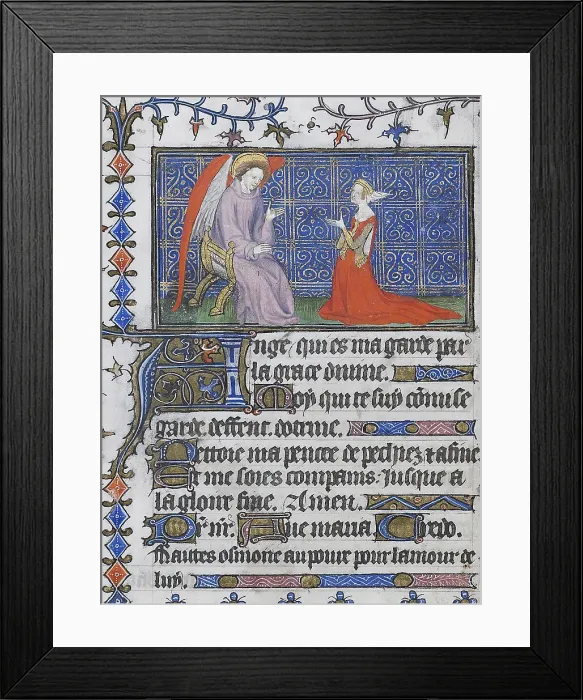 Ange, qui es ma garde par
la grace diuine.
Moy qui te suy cōmise
garde deffent. doctrine.
Nettoie ma pencee de pechiez t afine
Et me soies compains. Jusque a
la gloire fine. Amen.
Pr̄ nr̄. Aue maria. Credo.
Faites osmone au poure pour lamour de
luy.